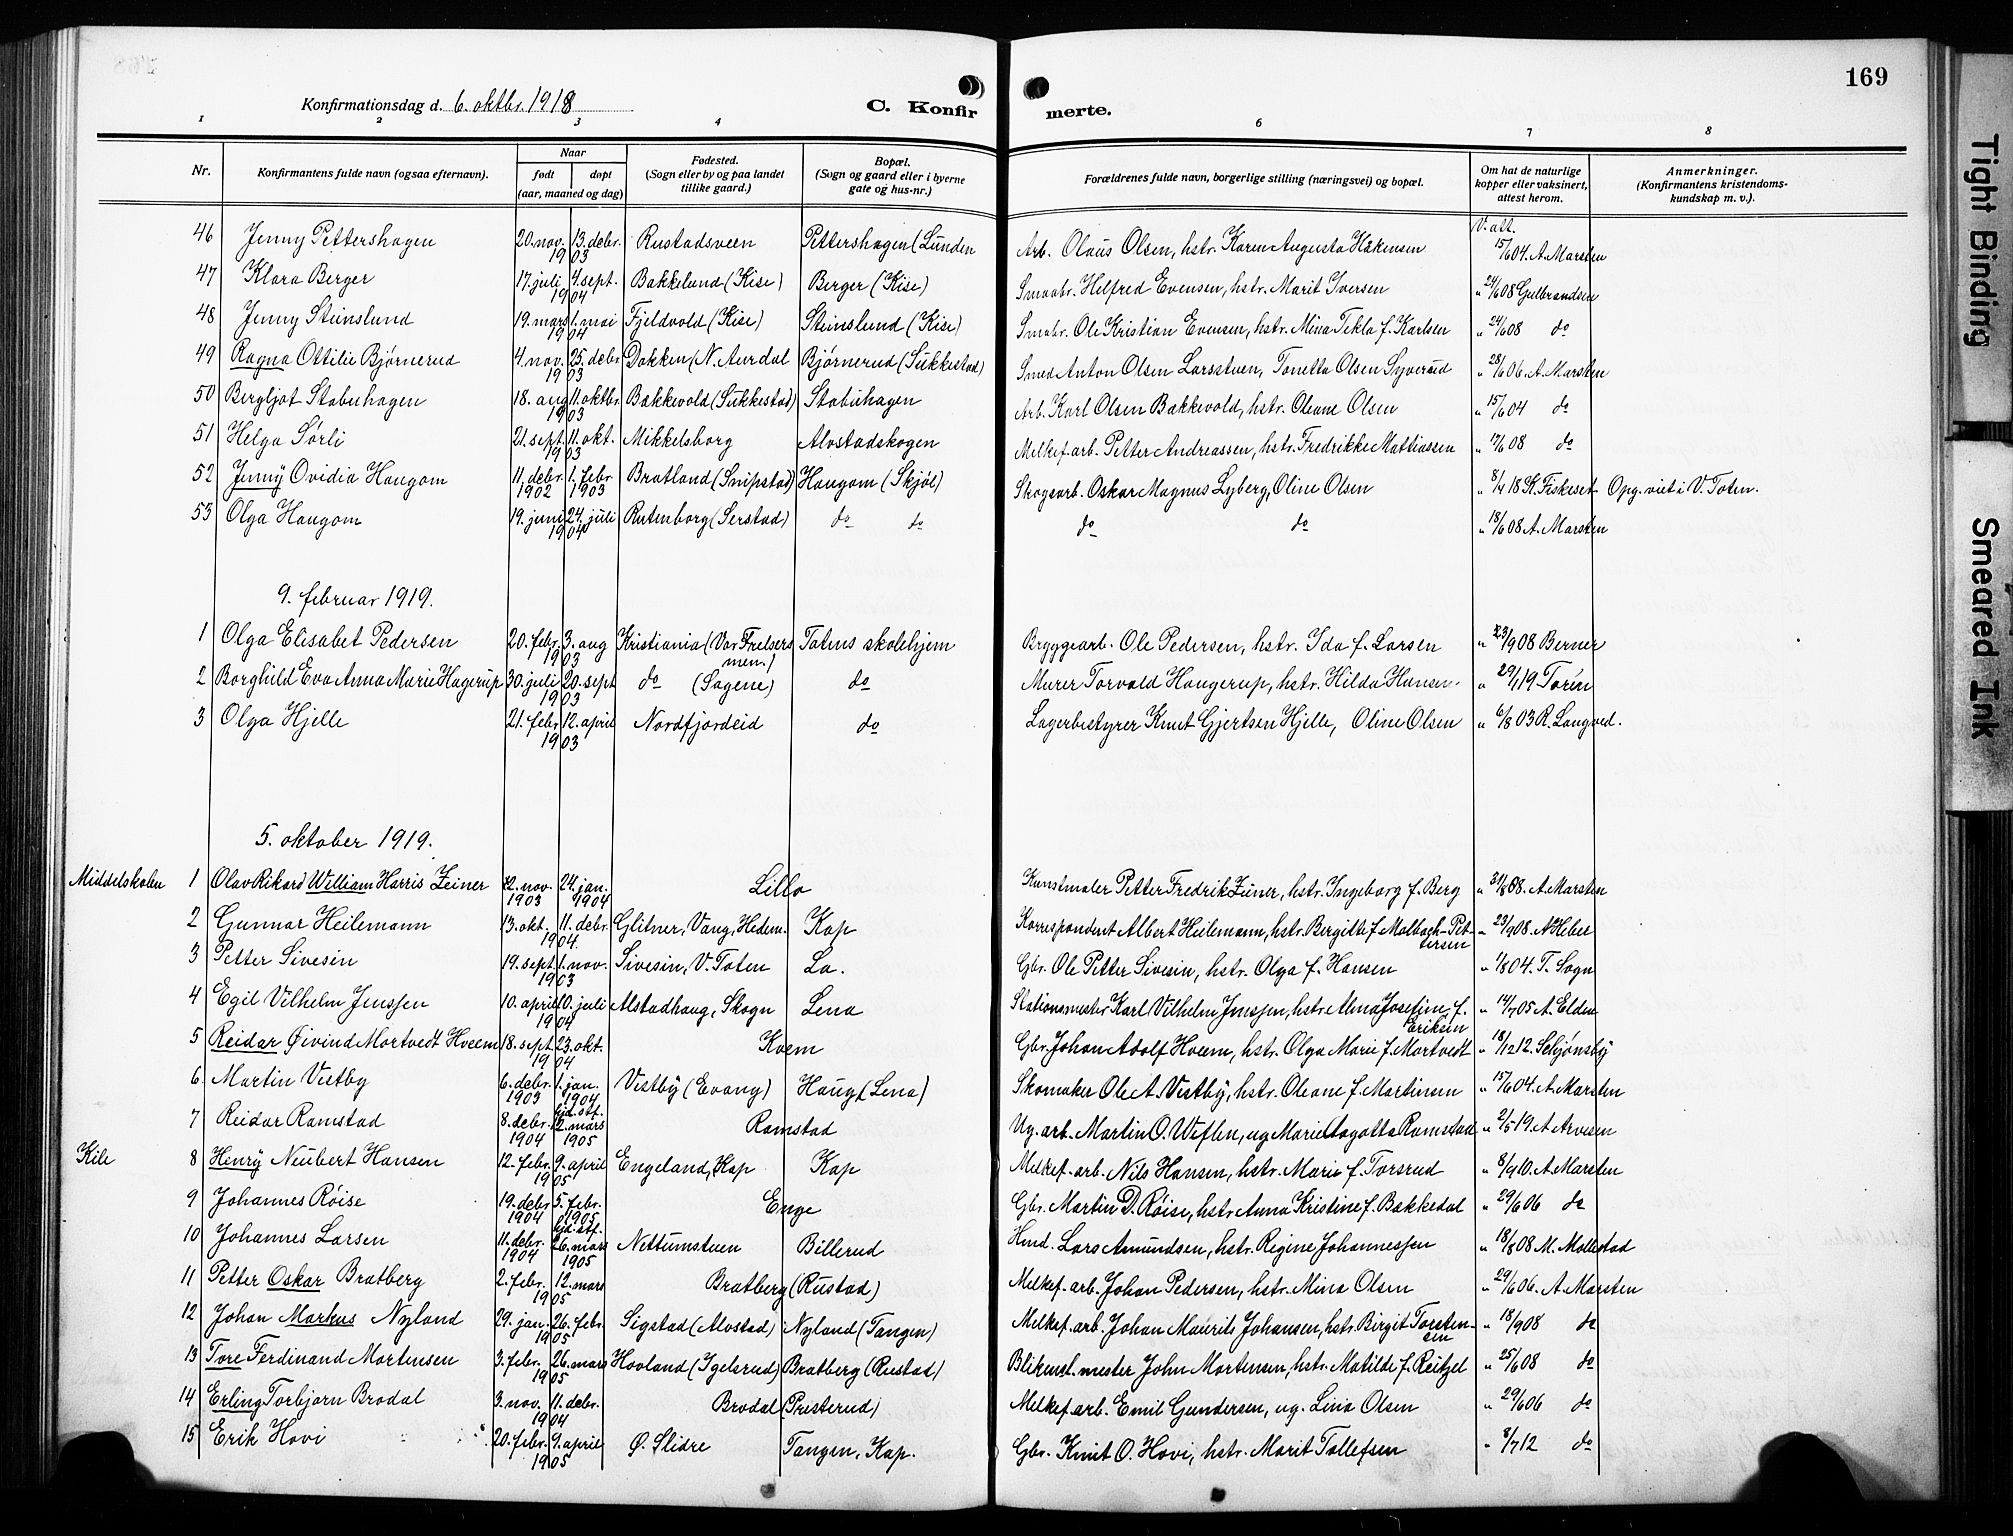 169
Konfirmationsdag d. 6. oktbr. 1918
C. Konfirmerte.
1 2 3 4 6 7 8
Nr. Konfirmantens fulde navn (ogsaa efternavn). Naar født døpt (aar, maaned og dag) Fødested. (Sogn eller by og paa landet tillike gaard.) Bopæl. (Sogn og gaard eller i byerne gate og hus-nr.) Forældrenes fulde navn, borgerlige stilling (næringsvei) og bopæl. Om hat de naturlige kopper eller vaksinert, attest herom. Anmerkninger. (Konfirmantens kristendoms-kundskap m. v.).
46 Jenny Pettershagen 20. nov. 13. debr. 1903 Rustadsveen Pettershagen (Lunden Arb. Olaus Olsen, hstr. Karen Augusta Håkensen V. att. 15/6 04. A. Marsten
47 Klara Berger 17. juli 4. sept. 1904 Bakkelund (Kise) Berger (Kise) Smaabr. Helfred Evensen, hstr. Marit Iversen " 24/6 08 Gulbrandsen
48 Jenny Steinslund 19. mars 1. mai 1904 Fjeldvold (Kise) Steinslund (Kise) Smabr. Ole Kristian Evensen, hstr. Mina Tekla f. Karlsen " 24/6 08 do
49 Ragna Ottilie Bjørnerud 4. nov. 25. debr. 1903 Dokken (N. Aurdal Bjørnerud (Sukkestad) Smed Anton Olsen Larsstuen, Tonetta Olsen Syverud " 28/6 06. A. Marsten
50 Bergljot Stabuhagen 18. aug 11. oktbr. 1903 Bakkevold (Sukkestad) Stabuhagen Arb. Karl Olsen Bakkevold, hstr. Oleane Olsen " 15/6 04 do
51 Helga Sørli 21. sept. 11. okt. 1903 Mikkelsborg Alvstadskogen Melkef. arb. Petter Andreassen, hstr. Fredrikke Mattiassen " 17/6 08 do
52 Jenny Ovidia Haugom 11. debr. 1902 1. febr 1903 Bratland (Snipstad) Haugom (Skjøl) Skogsarb. Oskar Magnus Lyberg, Oline Olsen " 8/4 18 K. Fiskeset Opg. viet i V. Toten.
53 Olga Haugom 19. juni 24. juli 1904 Rutenborg (Serstad) do do do do " 18/6 08 A. Marsten
9. februar 1919.
1 Olga Elisabet Pedersen 20. febr. 3. aug 1903 Kristiania (Vor Frelsers men.) Totens skolehjem Bryggearb. Ole Pedersen, hstr. Ida f. Larsen " 23/9 08 Berner
2 Borghild Eva Anna Marie Hagerup 30. juli 20. sept 1903 do (Sagene) do Murer Torvald Haugerup, hstr. Hilda Hansen " 29/1 19 Torén
3 Olga Hjelle 21. febr 12. april 1903 Nordfjordeid do Lagerbestyrer Knut Gjertsen Hjelle, Oline Olsen " 6/8 03 R. Langved.
5. oktober 1919.
Middelskolen 1 Olav Rikard William Harris Zeiner 22. nov. 1903 24. jan. 1904 Lillo Kunstmaler Petter Fredrik Zeiner, hstr. Ingeborg f. Berg " 31/8 08. A. Marsten
2 Gunnar Heilemann 13. okt. 11. debr. 1904. Glitner, Vang, Hedem. Kap Korrespondent Albert Heilemann, hstr. Birgitte f. Malbach-Pettersen " 23/9 08. A Heber
3 Petter Sivesin 19. sept 1. nov. 1903 Sivesin, V. Toten La. Gbr. Ole Petter Sivesin, hstr. Olga f. Hansen " 1/8 04. T. Sogn
4 Egil Vilhelm Jenssen 10. april 10. juli 1904 Alstadhaug, Skogn Lena Stationsmester Karl Vilhelm Jenssen, hstr. Alma Josefine f. Eriksen " 14/7 05 A. Elden
5 Reidar Øivind Mortvedt Hveem 18. sept. 23. okt. 1904 Kvem Gbr. Johan Adolf Hveem, hstr. Olga Marie f. Mortvedt " 18/12 12. Schjønsby
6 Martin Vestby 6. debr. 1903 1. jan. 1904 Vestby (Evang) Haug (Lena) Skomaker Ole A. Vestby, hstr. Oleane f. Martinsen " 15/6 04. A. Marsten
7 Reidar Ramstad 8. debr. 1904 hjd. stf. 12. mars 1905 Ramstad Ug. arb. Martin O. Weflen, ug Marie Ragotta Ramstad " 2/5 19. A Arvesen
Kile 8 Henry Neubert Hansen 12. febr. 9. april 1905 Engeland, Kap Kap Melkef. arb. Nils Hansen, hstr. Marie f. Torsrud " 8/9 10. A. Marsten
9 Johannes Røise 19. debr 1904 5. febr. 1905 Enge Gbr. Martin D. Røise, hstr Anna Kristine f. Bakkedal " 29/6 06 do
10 Johannes Larsen 11. debr. 1904 hjd. stf. 26. mars 1905 Nettumstuen Billerud Hmd. Lars Amundsen, hstr. Regine Johannessen " 18/8 08 M. Mollestad
11 Petter Oskar Bratberg 2. febr. 12. mars 1905 Bratberg (Rustad) Melkef. arb. Johan Pedersen, hstr. Mina Olsen " 29/6 06. A. Marsten
12 Johan Markus Nyland 29. jan. 26. febr. 1905 Sigstad (Alvstad) Nyland (Tangen) Melkef. arb. Johan Maurits Johansen, hstr. Birgit Torstensen " 18/9 08 do
13 Tore Ferdinand Mortensen 3. febr. 26. mars 1905 Hovland (Igelsrud) Bratberg (Rustad) Blikensl. mester John Mortensen, hstr. Matilde f. Reitzel " 25/6 08 do
14 Erling Torbjørn Brodal 3. nov. 11. debr. 1904 Brodal (Presterud) Melkef. arb. Emil Gundersen, ug. Lina Olsen " 29/6 06 do
15 Erik Hovi 20. febr. 9. april 1905 Ø. Slidre Tangen, Kap. Gbr. Knut O. Hovi, hstr. Marit Tollefsen " 8/7 12 do
Tight Binding
Smeared Ink